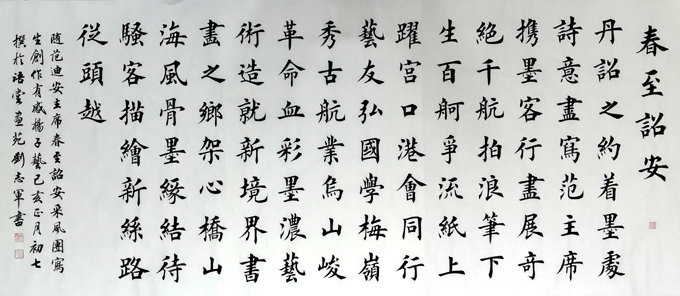 春至詔安
丹詔之約着墨處
詩意盡寫范主席
携墨客行盡展奇
絕千航拍浪筆下
生百舸爭流紙上
躍宮口港會同行
藝友弘國學梅嶺
秀古航業烏山峻
革命血彩墨濃藝
術造就新境界書
畫之鄉架心橋山
海風骨墨緣結待
騷客描繪新絲路
從頭越
随范迪安主席春至詔安采風團寫
生創作有感揚子藝己亥正月初七
撰於語堂畫苑劉志軍書